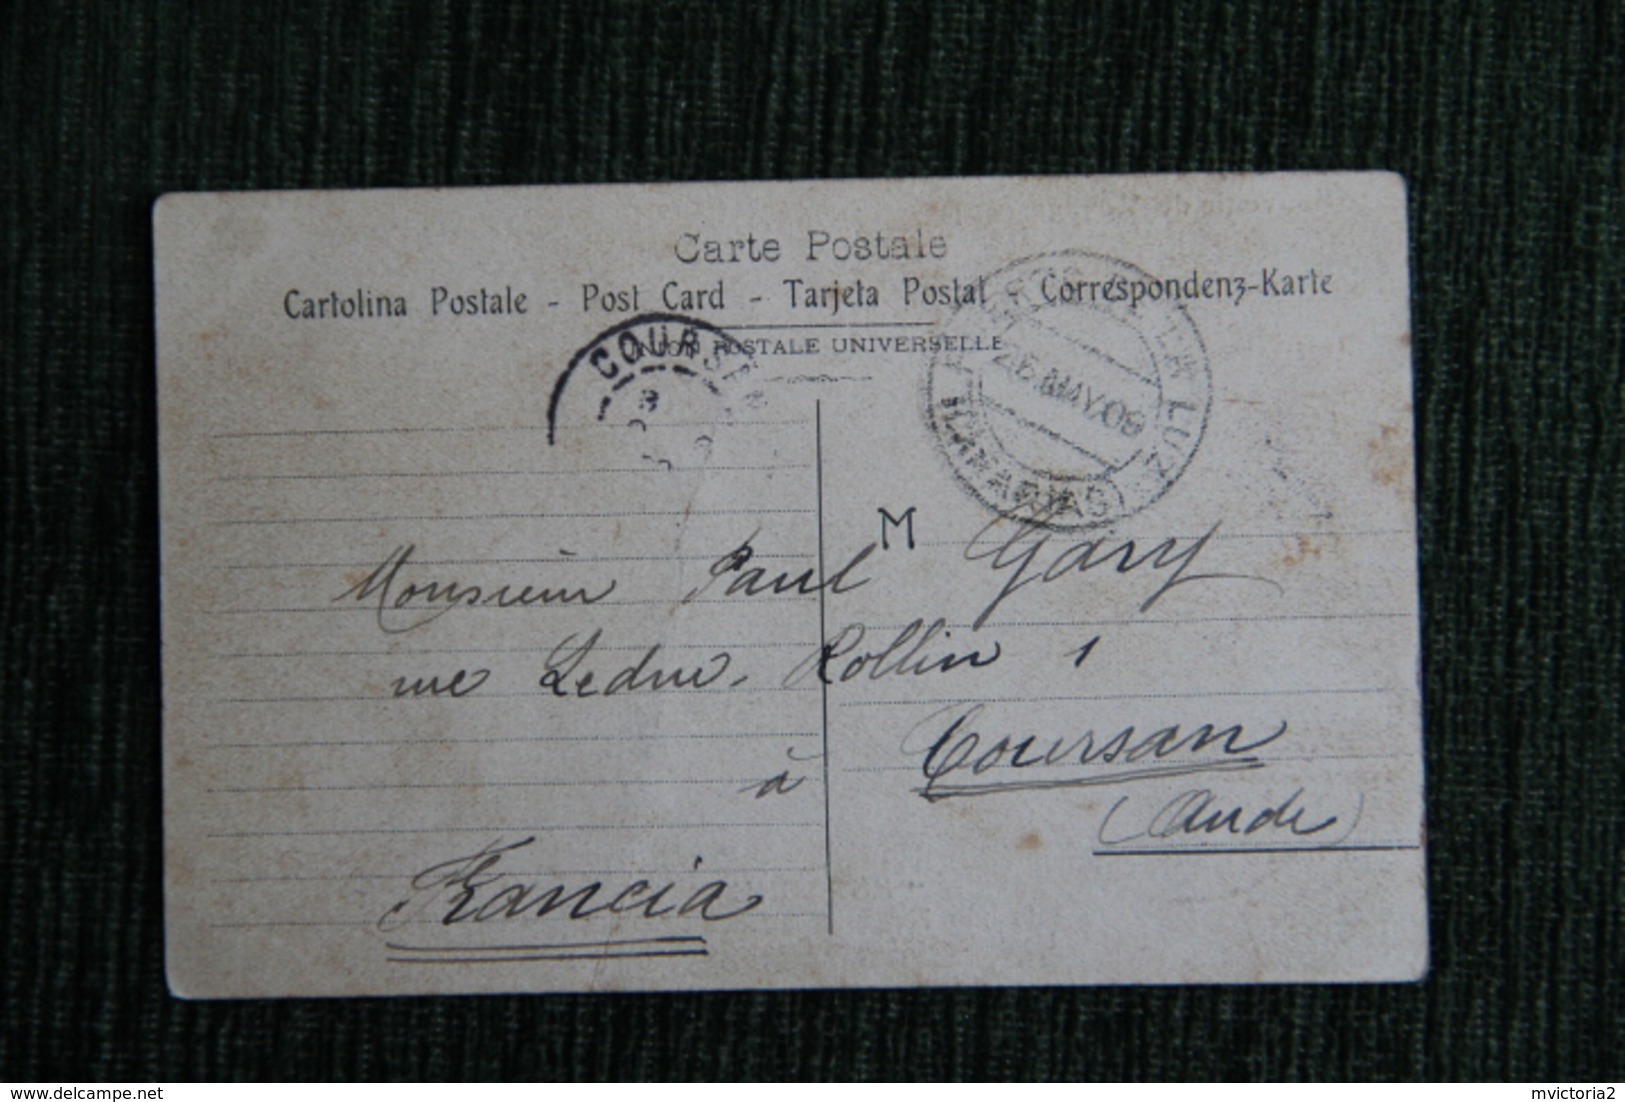 Carte Postale
Cartolina Postale - Post Card - Tarjeta Postal - Correspondenz-Karte
UNION POSTALE UNIVERSELLE
COURSAN
PUERTO DE LA LUZ
26 MAY.09
(CANARIAS)
M
Monsieur Paul Gary
rue Ledru-Rollin 1
à Coursan
(Aude)
Francia
delcampe.net
mvictoria2